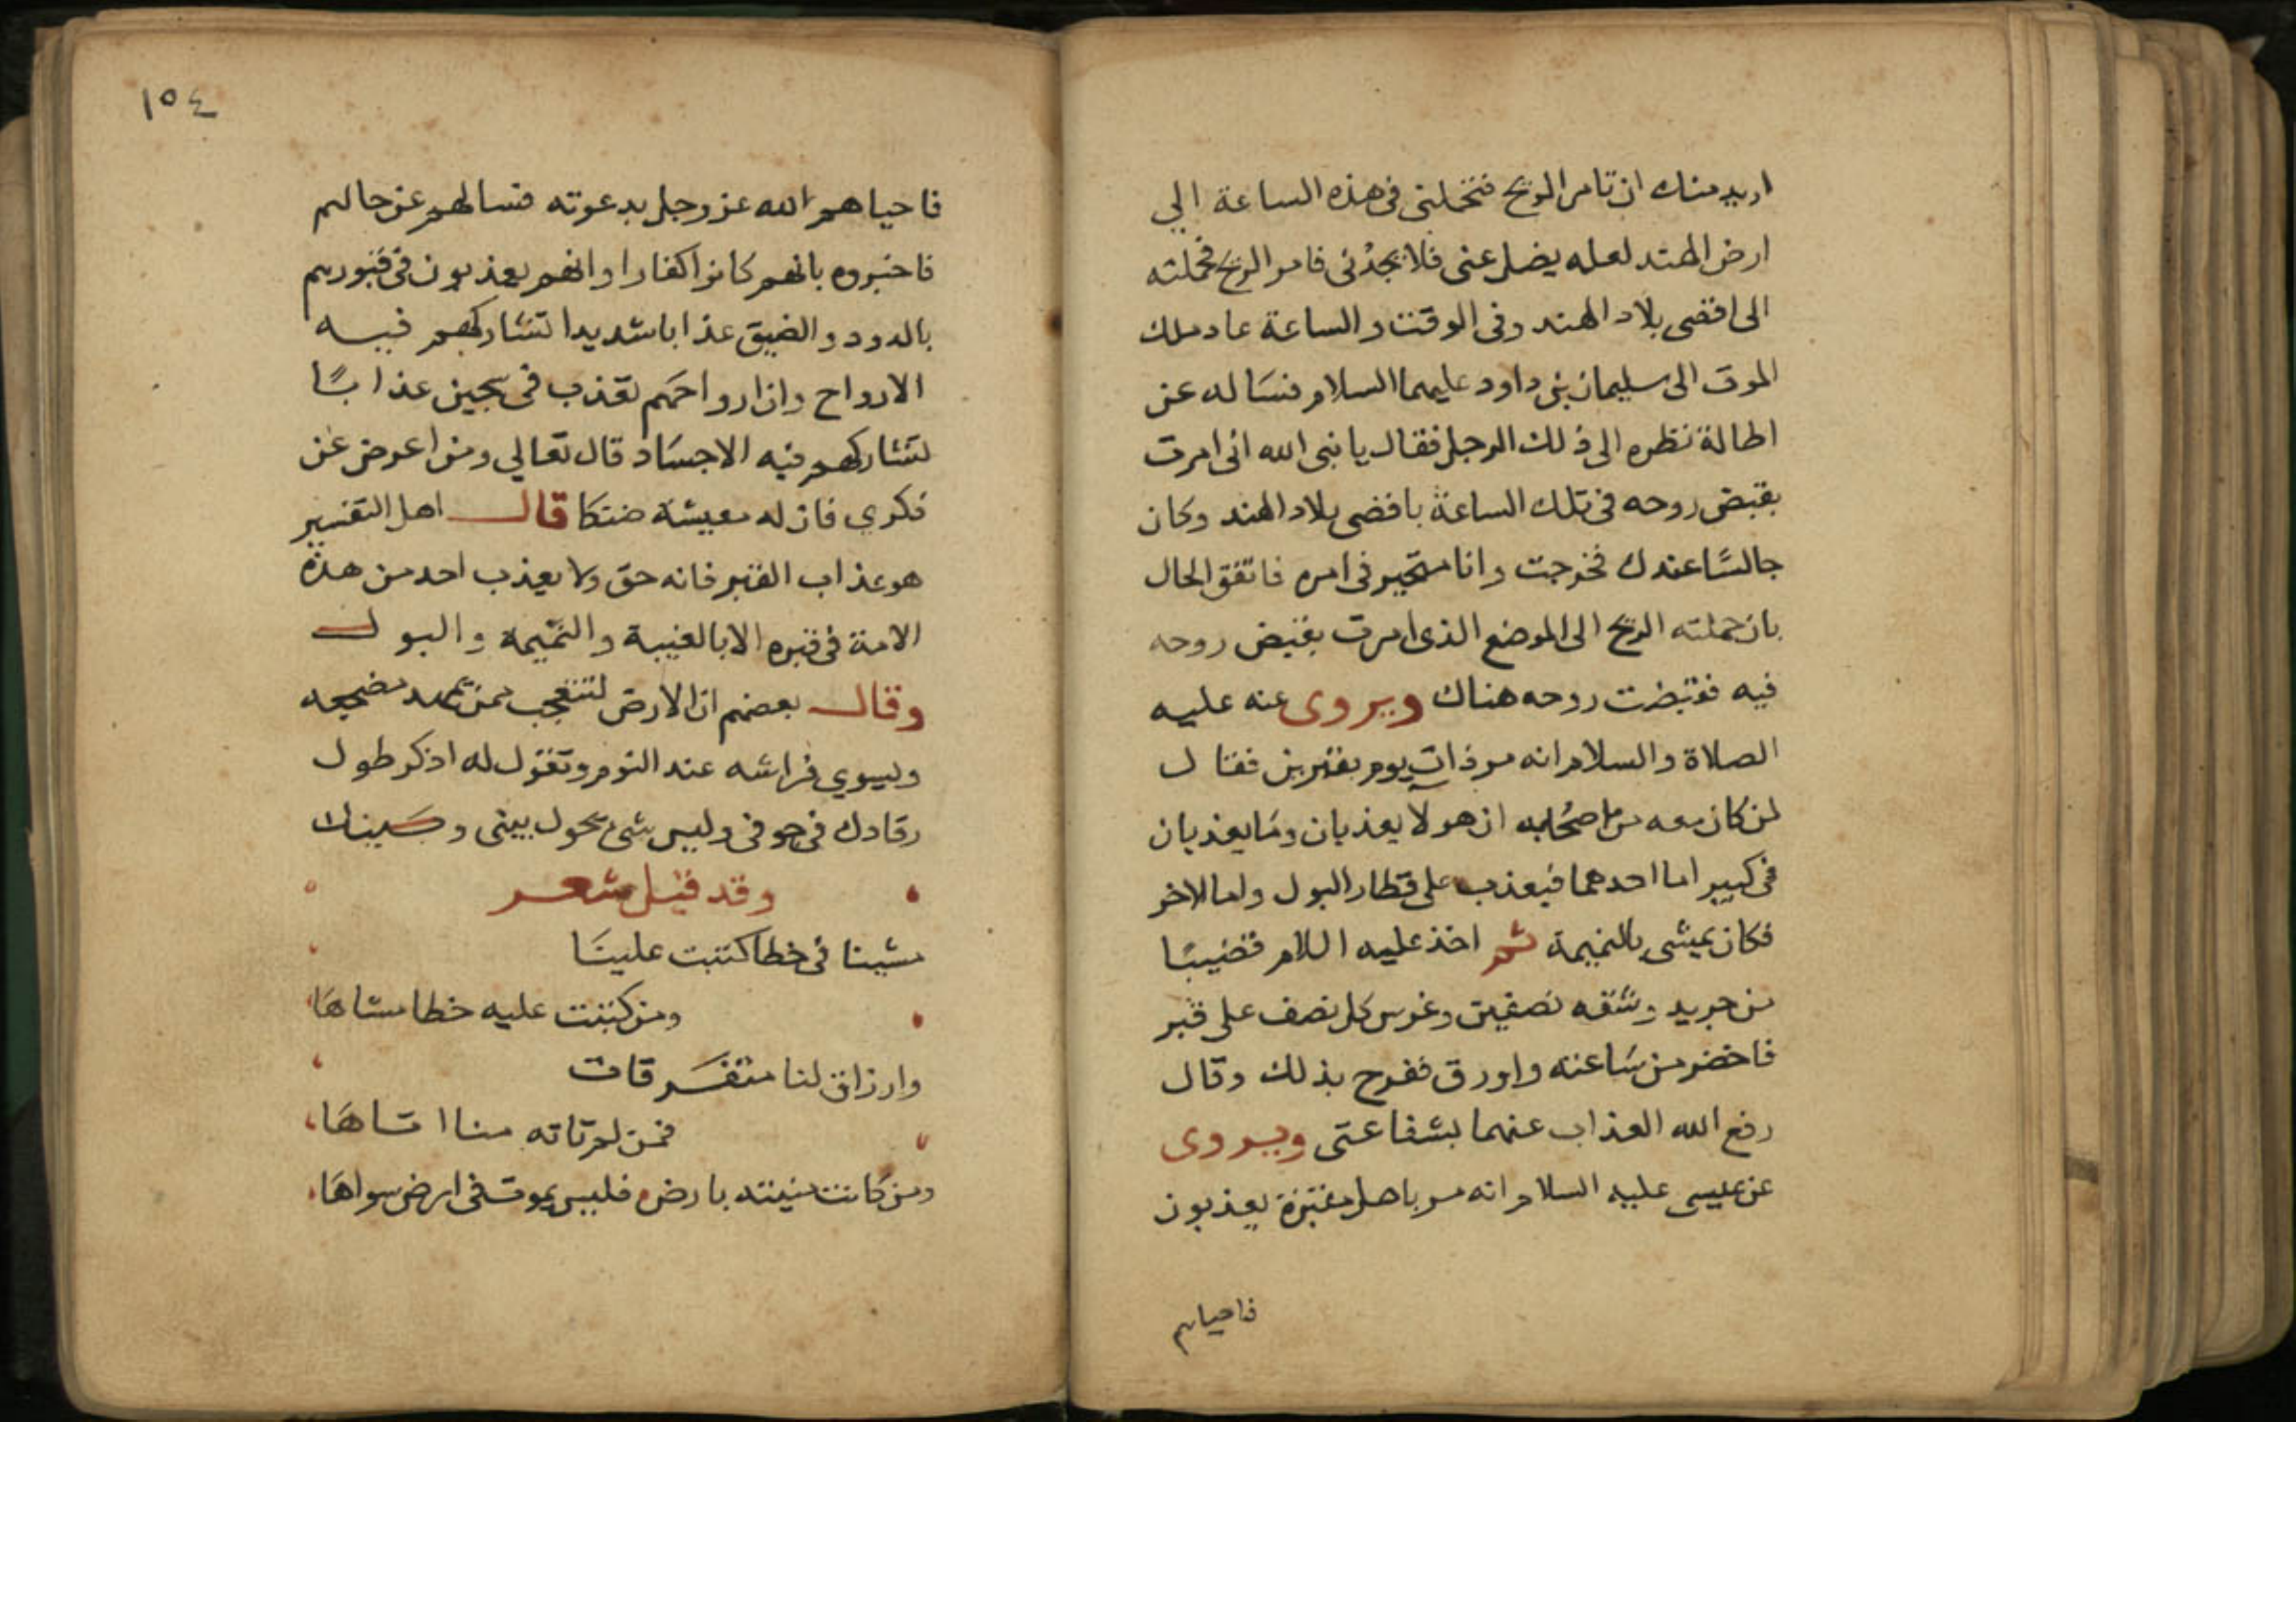 اريد منك ان تامر الريح فتحملني في هذه الساعة الي
ارض الهند لعله يضل عني فلا يجدني فامر الريح فحملته
الى اقصى بلاد الهند وفي الوقت والساعة عاد ملك
الموت الى سليمان بن داود عليهما السلام فسَاله عن
اطالة نظره الى ذلك الرجل فقال يا نبى الله انى امرت
بقبض روحه في تلك الساعة باقصى بلاد الهند وكان
جالسًا عندك فخرجت وانا متحير في امره فاتفق الحال
بان حملته الريح الى الموضع الذى امرت بقبض روحه
فيه فقبضت روحه هناك ويروى عنه عليه
الصلاة والسلام انه مر ذات يوم بقبرين فقال
لمن كان معه من اصحابه ان هولا يعذبان ومَا يعذبان
في كبير اما احدهما فيعذب على قطار البول واما الاخر
فكان يمشى بالنميمة ثم اخذ عليه اللام قضيبًا
من جريد وشقه نصفين وغرس كل نصف على قبر
فاخضر من سَاعته واورق ففرح بذلك وقال
رفع الله العذاب عنهما بشفاعتى ويروى
عن عيسى عليه السلام انه مر باهل مقبرة يعذبون
فاحياهم
١٥٤
فاحياهم الله عز وجل بدعوته فسالهم عن حالهم
فاخبروه بانهم كانوا كفارا وانهم يعذبون في قبورهم
بالدود والضيق عذابا شديدا تشاركهم فيه
الارواح وان ارواحهَم تعذب في سجين عذابًا
لتشاركهم فيه الاجسَاد قال تعالي ومن اعرض عن
ذكري فان له معيشة ضنكا قال اهل التفسير
هو عذاب القبر فانه حق ولا يعذب احد من هذه
الامة في قبره الا بالغيبة والنميمة والبول
وقال بعضهم ان الارض لتتعجب ممن يمهد مضجعه
ويسوي فراشه عند النوم وتقول له اذكر طول
رقادك في جوفى وليس شى يحول بينى وبَينك
وقد قيل شعر
مشينا في خطا كتبت علينَا
ومن كتبت عليه خطا مشاهَا
وارزاق لنا متفرقات
فمن لم تاته منا اتاهَا
ومن كانت منيته بارض فليس يموت في ارض سواهَا